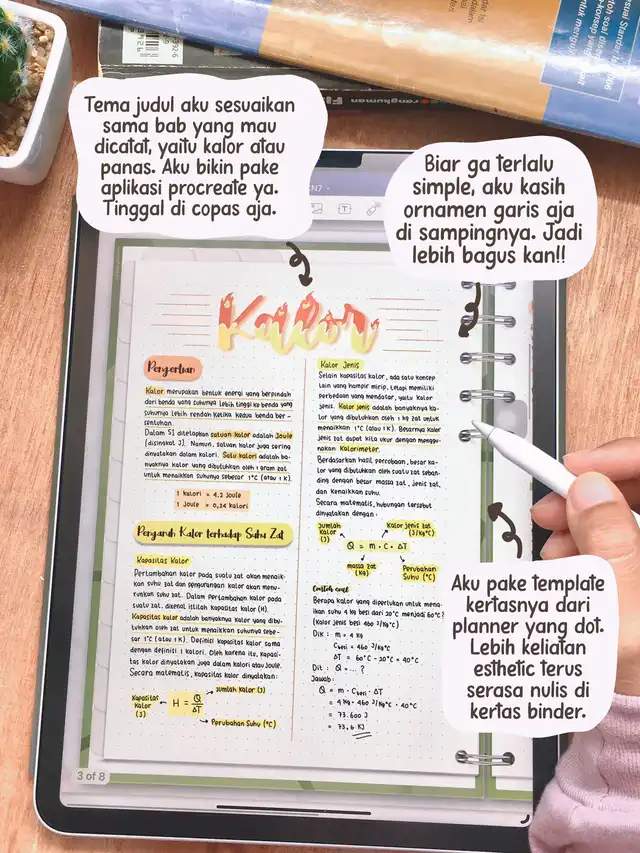 Tema judul aku sesuaikan
sama bab yang mau
dicatat, yaitu kalor atau
panas. Aku bikin pake
aplikasi procreate ya.
Tinggal di copas aja.
Biar ga terlalu
simple, aku kasih
ornamen garis aja
di sampingnya. Jadi
lebih bagus kan!!
Kalor
Pengertian
Kalor merupakan bentuk energi yang berpindah
dari benda yang suhunya lebih tinggi ke benda yang
suhunya lebih rendah ketika kedua benda ber-
sentuhan.
Dalam SI ditetapkan satuan kalor adalah Joule
(disingkat J). Namun, satuan kalor juga sering
dinyatakan dalam kalori. Satu kalori adalah ba-
nyaknya kalor yang dibutuhkan oleh 1 gram zat
untuk menaikkan suhunya sebesar 1°C (atau 1 K).
1 kalori = 4,2 Joule
1 Joule = 0,24 kalori
Pengaruh Kalor terhadap Suhu Zat
Kapasitas Kalor
Pertambahan kalor pada suatu zat akan menaik-
kan suhu zat dan pengurangan kalor akan menu-
runkan suhu zat. Dalam pertambahan kalor pada
suatu zat, dikenal istilah kapasitas kalor (H).
Kapasitas kalor adalah banyaknya kalor yang dibu-
tuhkan oleh zat untuk menaikkan suhunya sebe-
sar 1°C (atau 1 K). Definisi kapasitas kalor sama
dengan definisi 1 kalori. Oleh karena itu, kapasi-
tas kalor dinyatakan juga dalam kalori atau Joule.
Secara matematis, kapasitas kalor dinyatakan:
Jumlah Kalor (J)
Kapasitas Kalor (J)
H = Q/ΔT
Perubahan Suhu (°C)
Kalor Jenis
Selain kapasitas kalor, ada satu konsep
lain yang hampir mirip, tetapi memiliki
perbedaan yang mendasar, yaitu kalor
jenis. Kalor jenis adalah banyaknya ka-
lor yang dibutuhkan oleh 1 kg zat untuk
menaikkan 1°C (atau 1 K). Besarnya kalor
jenis zat dapat kita ukur dengan menggu-
nakan Kalorimeter.
Berdasarkan hasil percobaan, besar ka-
lor yang dibutuhkan oleh suatu zat seban-
ding dengan besar massa zat, jenis zat,
dan kenaikkan suhu.
Secara matematis, hubungan tersebut
dinyatakan dengan:
Jumlah Kalor (J)
Kalor jenis zat (J/Kg°C)
Q = m · C · ΔT
massa zat (Kg)
Perubahan Suhu (°C)
Contoh soal
Berapa kalor yang diperlukan untuk mena-
ikan suhu 4 kg besi dari 20°C menjadi 60°C?
(Kalor jenis besi 460 J/Kg°C)
Dik : m = 4 kg
Cbesi = 460 J/Kg°C
ΔT = 60°C - 20°C = 40°C
Dit : Q = ... ?
Jawab :
Q = m · Cbesi · ΔT
= 4 Kg · 460 J/Kg°C · 40°C
= 73.600 J
= 73,6 KJ
Aku pake template
kertasnya dari
planner yang dot.
Lebih keliatan
esthetic terus
serasa nulis di
kertas binder.
3 of 8